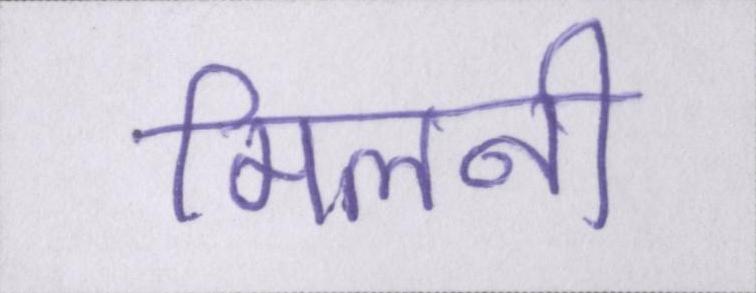 मिलनी